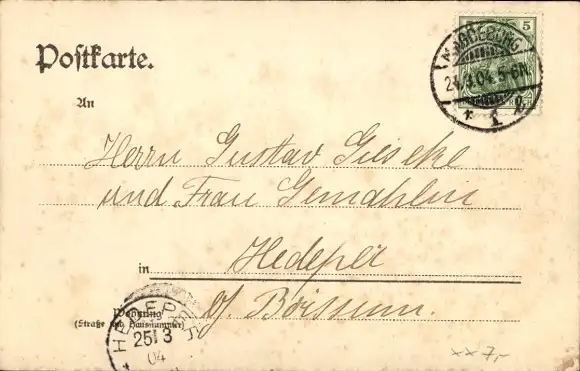 Postkarte.
5
MAGDEBURG
24.3.04. 5-6N.
* 1 g
An
Herrn Gustav Gieseke
und Frau Gemahlin
Hedeper
in
b/ Börssum.
Wohnung
(Straße und Hausnummer)
HEDEPER
25 3
04
xx 7,-